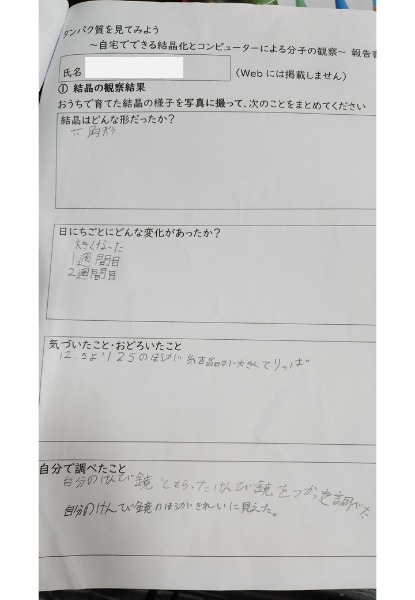 タンパク質を見てみよう
～自宅でできる結晶化とコンピューターによる分子の観察～ 報告書
氏名
（Webには掲載しません）
① 結晶の観察結果
おうちで育てた結晶の様子を写真に撮って、次のことをまとめてください
結晶はどんな形だったか？
六角形
日にちごとにどんな変化があったか？
大きくなった
1週間目
2週間目
気づいたこと・おどろいたこと
12.5より125のほうが結晶が大きくてりっぱ
自分で調べたこと
自分のけんび鏡ともらったけんび鏡をつかって調べた
自分のけんび鏡のほうがきれいに見えた。